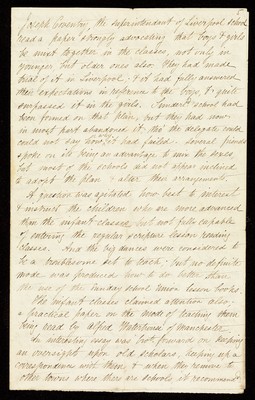 Joseph Coventry, the superintendent of Liverpool school
read a paper strongly advocating that boys & girls
be must together in the classes, not only in
younger but older ones also. They had made
trial of it in Liverpool, & it had fully answered
their expectations in reference to the boys, & quite
surpassed it in the girls. school had
been formed on that plan, but they had now
in most part abandoned it, tho' the delegate could
could not say how it had failed. Several friends
spoke on its being an advantage to mix the sexes,
but most of the schools did not appear inclined
to adopt the plan & alter their arrangements.
A question was agitated how best to interest
& instruct the children who are more advanced
than the infant classes, but not fully capable
of entering the regular scripture lesson reading
classes. And the big dances were considered to
be a troublesome set to teach, but no definite
mode was produced how to do better than
the use of the Sunday school Union lesson books.
The infant classes claimed attention also,
a practical paper on the mode of teaching them
being read by Alfred Waterhouse of Manchester.
An interesting essay was brot forward on keeping
an oversight upon old scholars, keeping up a
correspondence with them, & when they remove to
other towns where there are schools, it recommend